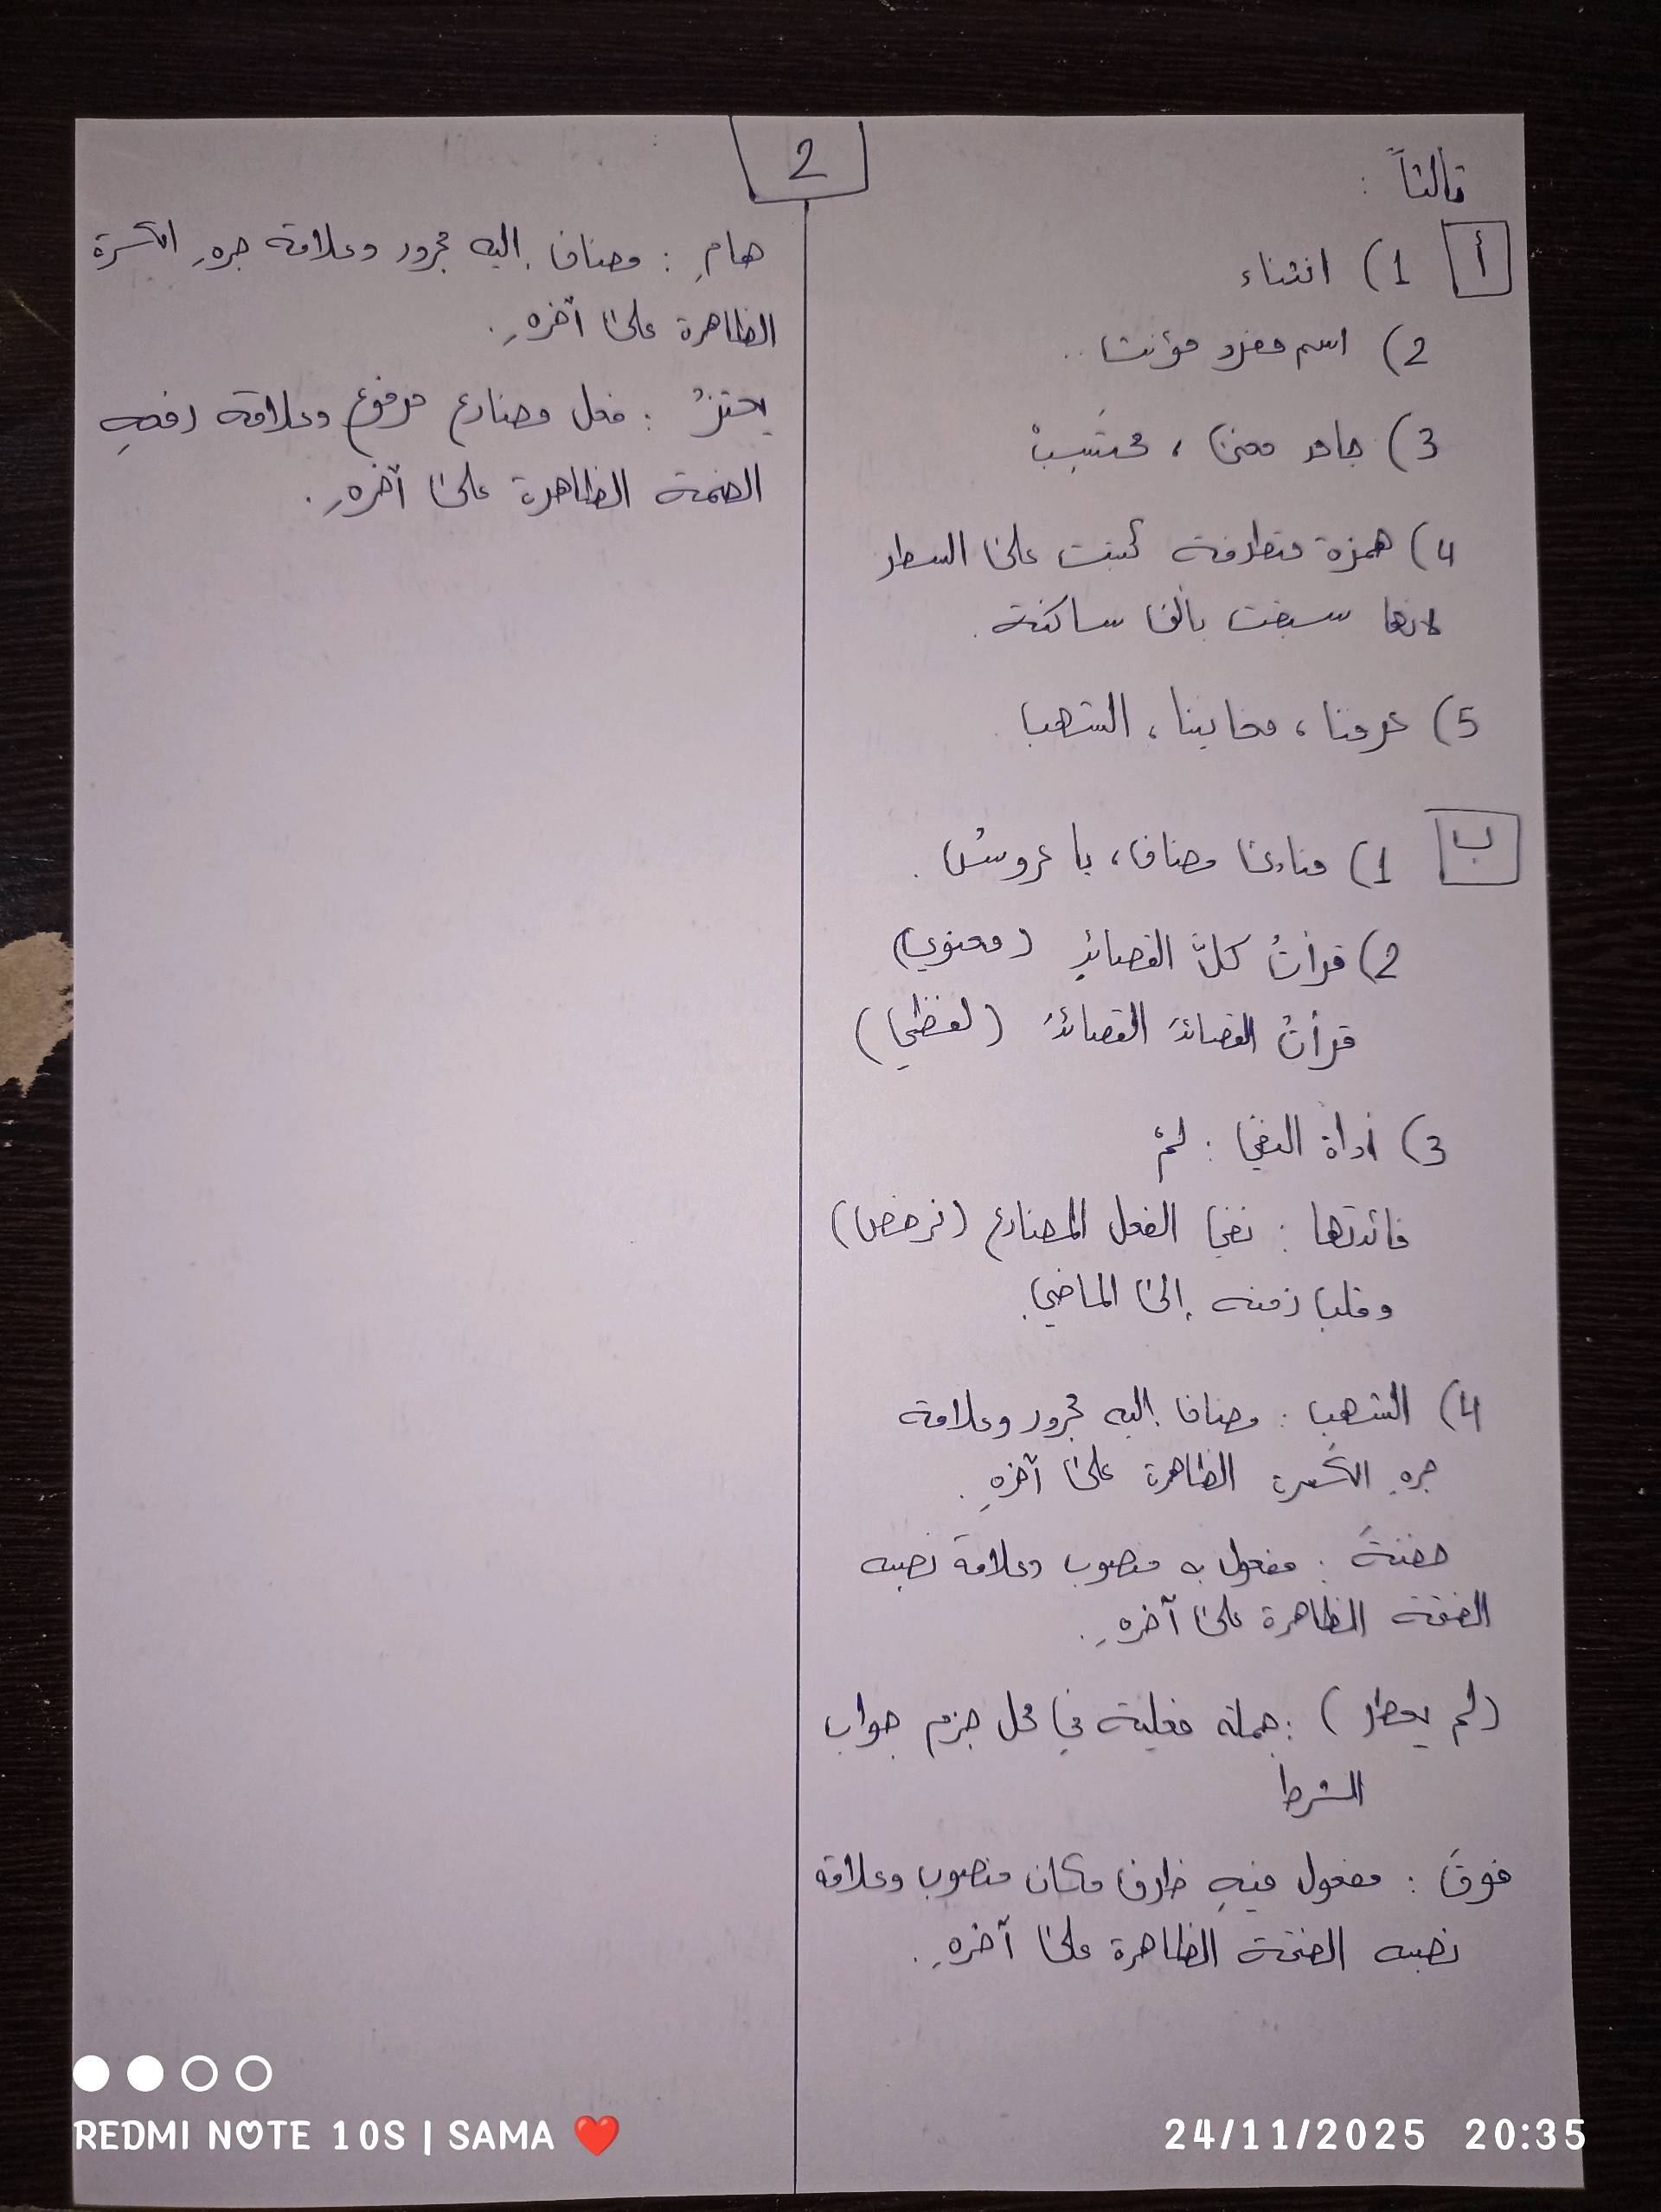 2
ثالثاً :
أ 1) انثناء
2) اسم مفرد مؤنث ..
3) جامد معنى ، مُحتَسِبْ
4) همزة متطرفة كُتبت على السطر
لانها سبقت بألف ساكنة .
5) عرفنا ، محابينا ، الشهب
ب 1) منادى مضاف ، يا عروسُ .
2) قرأتُ كلَّ القصائدِ (معنوي)
قرأتُ القصائدَ القصائدَ (لفظي)
3) أداة النفي : لمْ
فائدتها : نفي الفعل المضارع (نرخص)
وقلب زمنه إلى الماضي .
4) الشهب : مضاف إليه مجرور وعلامة
جرهِ الكسرة الظاهرة على آخرهِ .
حفنةَ : مفعول به منصوب وعلامة نصبه
الفتحة الظاهرة على آخرهِ .
(لم يمطر) : جملة فعلية في محل جزم جواب
الشرط
فوقَ : مفعول فيهِ ظرف مكان منصوب وعلامة
نصبه الفتحة الظاهرة على آخرهِ .
هامِ : مضاف إليه مجرور وعلامة جرهِ الكسرة
الظاهرة على آخرهِ .
يهتزُ : فعل مضارع مرفوع وعلامة رفعهِ
الضمة الظاهرة على آخرهِ .
REDMI NOTE 10S | SAMA ❤️
24/11/2025 20:35